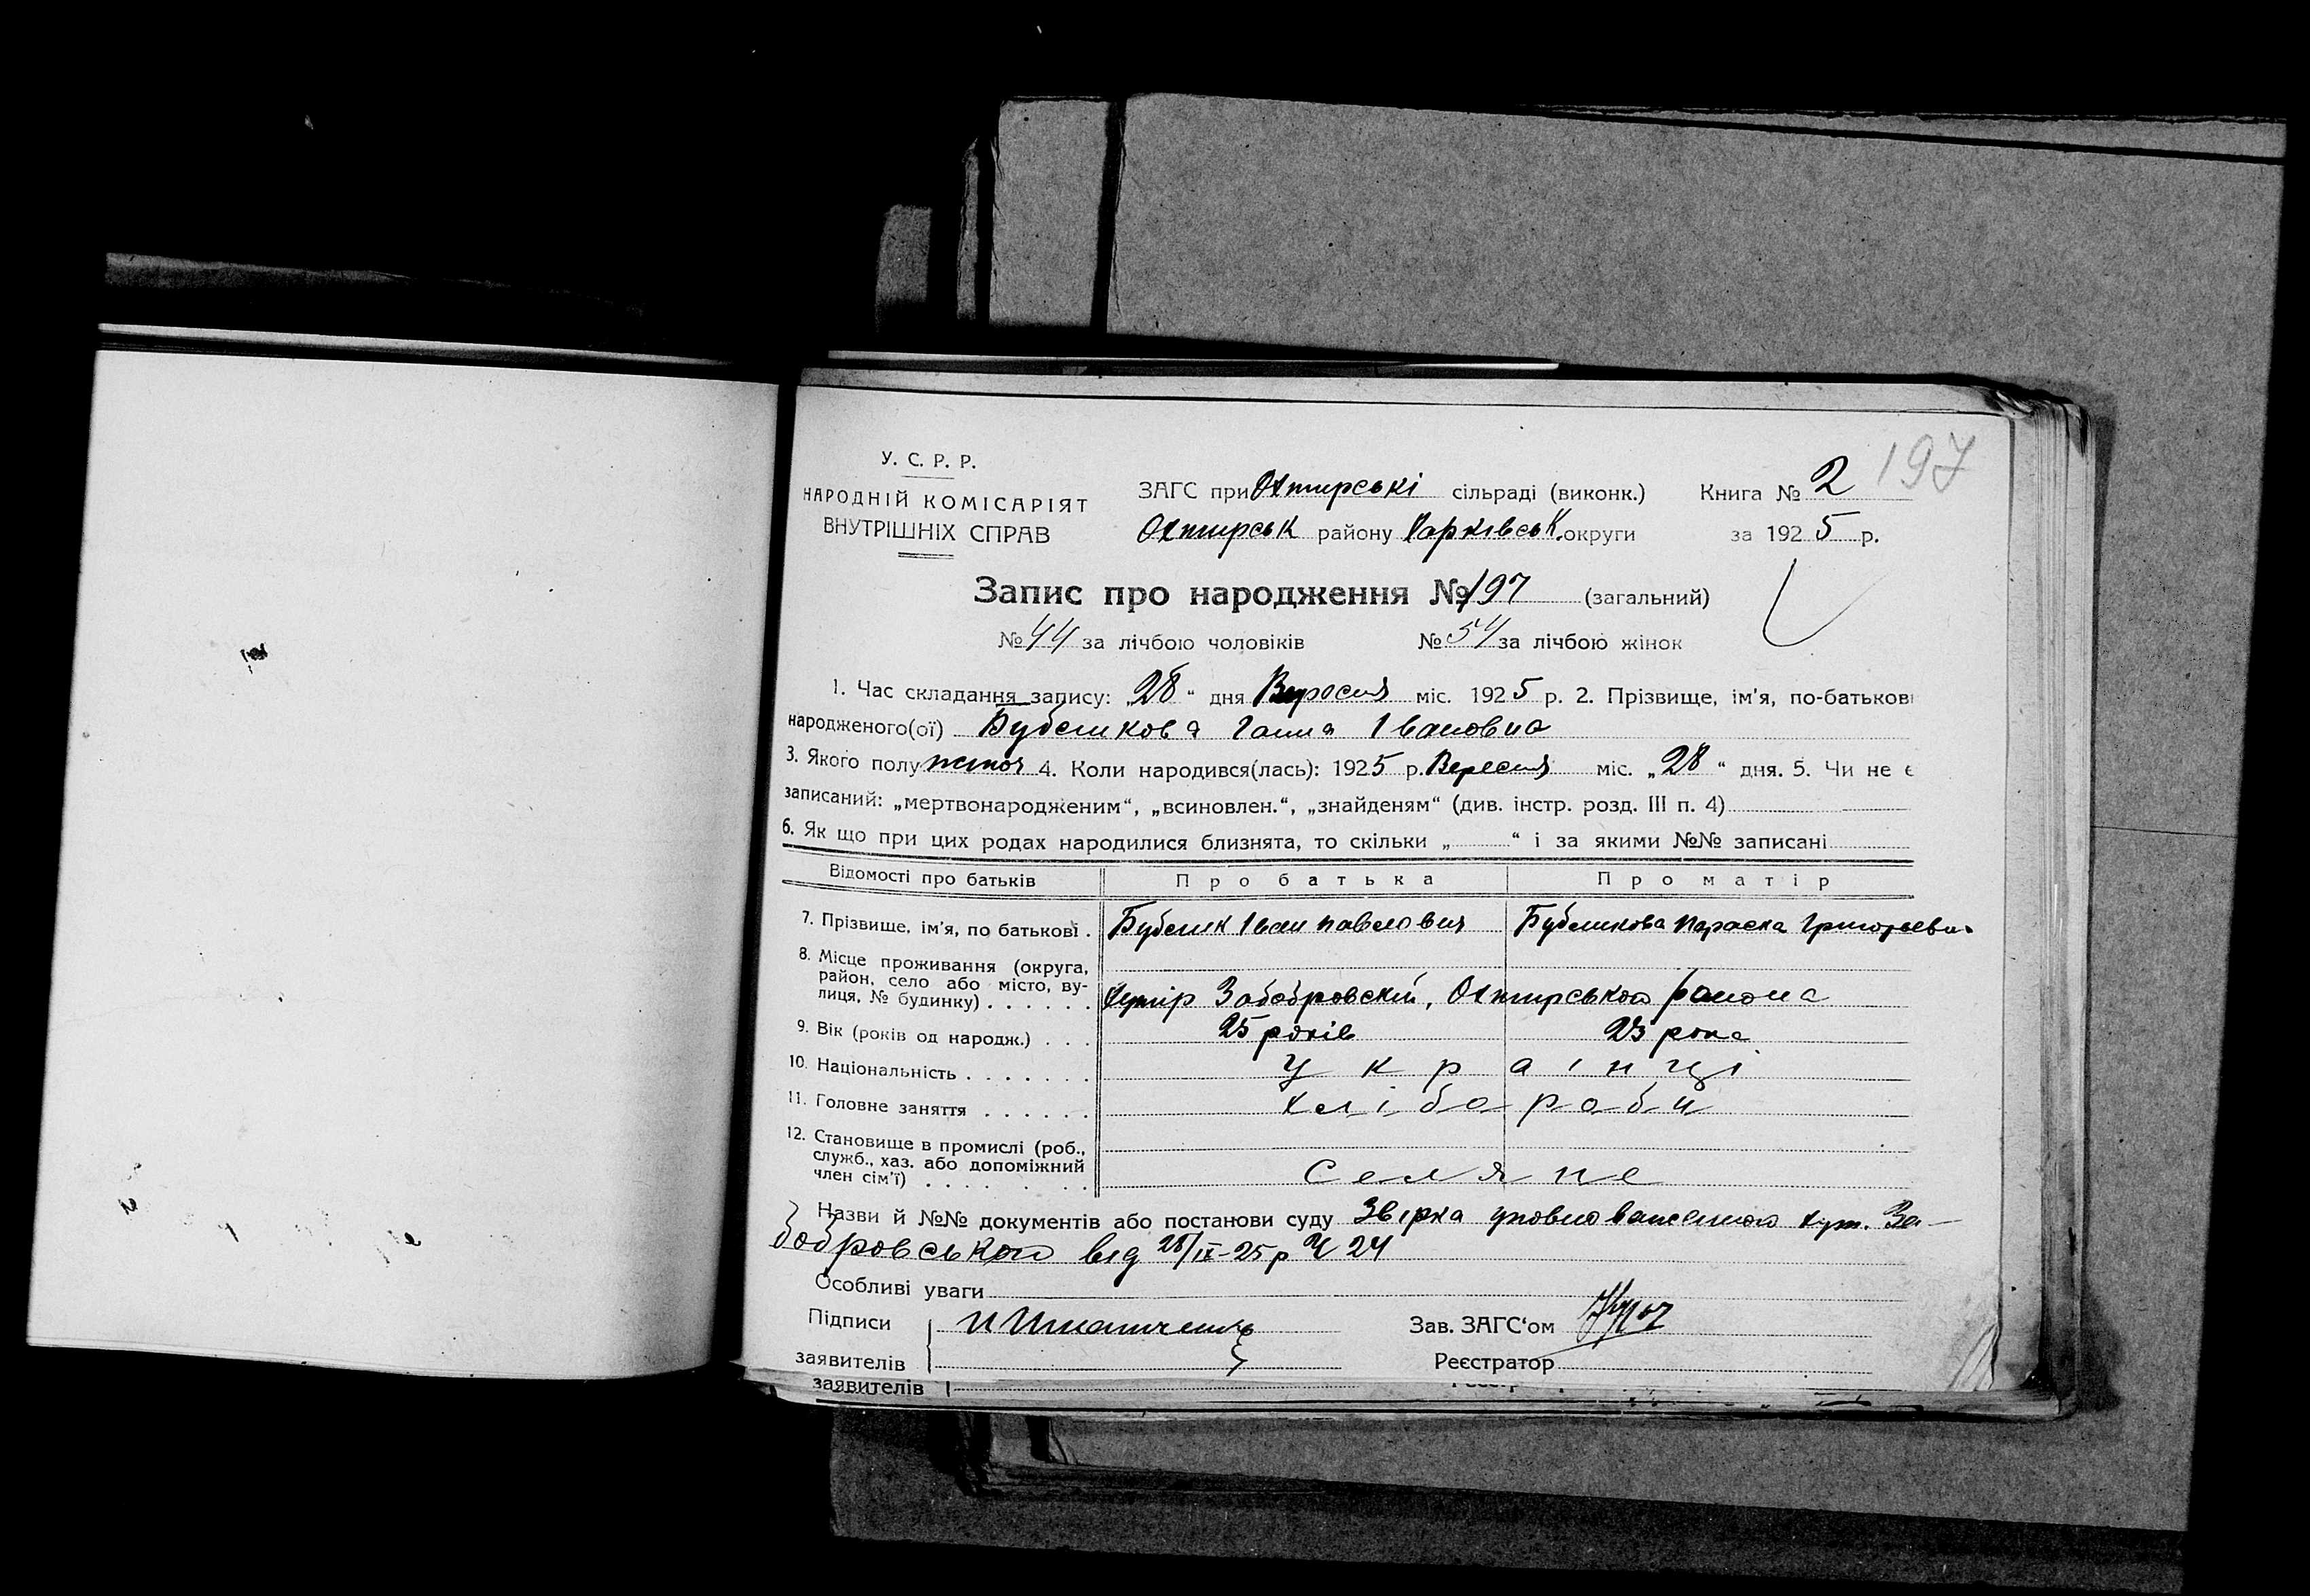 197
У. С. Р. Р.
НАРОДНІЙ КОМІСАРІЯТ
ВНУТРІШНІХ СПРАВ
ЗАГС при Охтирські сільраді (виконк.) Книга № 2
Охтирськ району Харківськ. округи за 1925 р.
Запис про народження № 197 (загальний)
№ 44 за лічбою чоловіків № 54 за лічбою жінок
1. Час складання запису: „28“ дня Вересня міс. 1925 р. 2. Прізвище, ім'я, по-батькові
народженого(ої) Бубликова Ганна Івановна
3. Якого полу жіноч 4. Коли народився(лась): 1925 р. Вересня міс. „28“ дня. 5. Чи не є
записаний: „мертвонародженим“, „всиновлен.“, „знайденям“ (див. інстр. розд. III п. 4)
6. Як що при цих родах народилися близнята, то скільки „ “ і за якими №№ записані
Відомості про батьків Про батька Про матір
7. Прізвище, ім'я, по батькові . Бублик Іван Павлович Бубликова Параска Григорьевн.
8. Місце проживання (округа,
район, село або місто, ву-
лиця, № будинку) . . . . . . Хутір Забобровский, Охтирського района
9. Вік (років од народж.) . . . 25 років 23 рока
10. Національність . . . . . . . українці
11. Головне заняття . . . . . . хлібороби
12. Становище в промислі (роб.,
служб., хаз. або допоміжний
член сім'ї) . . . . . . . селяне
Назви й №№ документів або постанови суду Звірка уповноваженного хут. За-
бобровського від 28/IX-25 р Ч 24
Особливі уваги
Підписи Зав. ЗАГС'ом
заявителів Реєстратор
заявителів